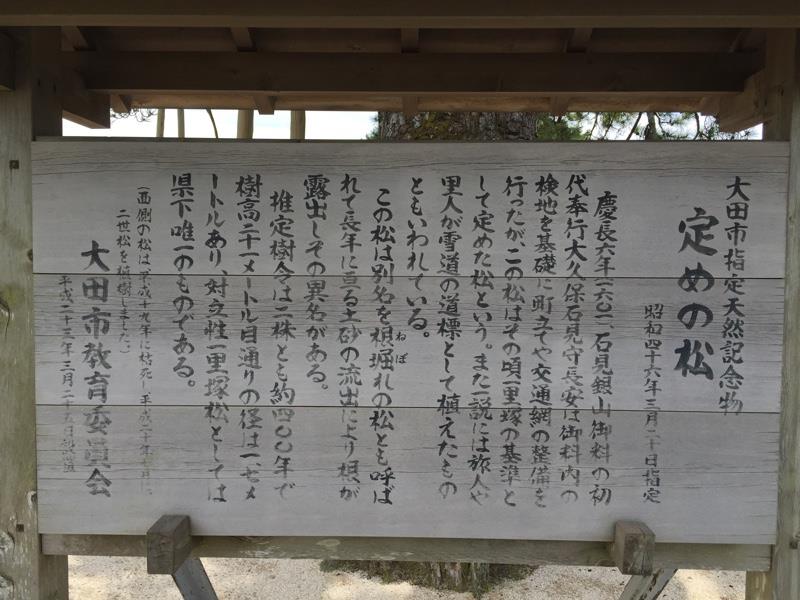 大田市指定天然記念物
定めの松
昭和四十六年三月二十日指定
慶長六年(一六〇一)石見銀山御料の初
代奉行大久保石見守長安は御料内の
検地を基礎に町立てや交通網の整備を
行ったが、この松はその頃一里塚の基準と
して定めた松という。また一説には旅人や
里人が雪道の道標として植えたもの
ともいわれている。
この松は別名を根堀れの松とも呼ば
ねぼ
れて長年に亘る土砂の流出により根が
露出しその異名がある。
推定樹令は二株とも約四〇〇年で
樹高二十一メートル目通りの径は一、七メ
ートルあり、対立性一里塚松としては
県下唯一のものである。
(西側の松は、平成十九年に枯死し平成二十年七月に
二世松を植樹しました。)
大田市教育委員会
平成二十三年三月二十五日設置